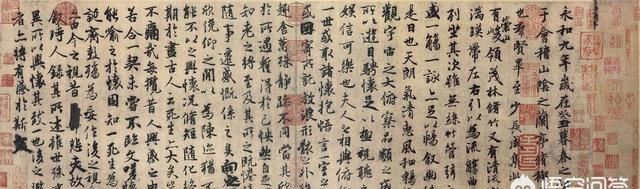 永和九年歲在癸丑暮春之
于會稽山陰之蘭亭脩稧
也群賢畢至少長咸集
有崇山峻領茂林脩竹又有清
湍暎帶左右引以為流觴曲
列坐其次雖無絲竹管弦
盛一觴一詠亦足以暢敘幽
是日也天朗氣清惠風和暢
觀宇宙之大俯察品類之
所以遊目騁懷足以極視聽
娛信可樂也夫人之相與俯仰
一世或取諸懷抱悟言一室之
或因寄所託放浪形骸之外
趣舍萬殊靜躁不同當其
於所遇蹔得於己怏然自
知老之將至及其所之既惓
隨事遷感慨係之矣向之
欣俛仰之閒以為陳迹
能不以之興懷況脩短隨化
期於盡古人云死生亦大矣
不痛哉每攬昔人興感之由
若合一契未嘗不臨文嗟
能喻之於懷固知一死生為
誕齊彭殤為妄作後之視
亦由今之視昔悲夫故
敘時人錄其所述雖世殊
異所以興懷其致一也後之
者亦將有感於斯
悟空问答